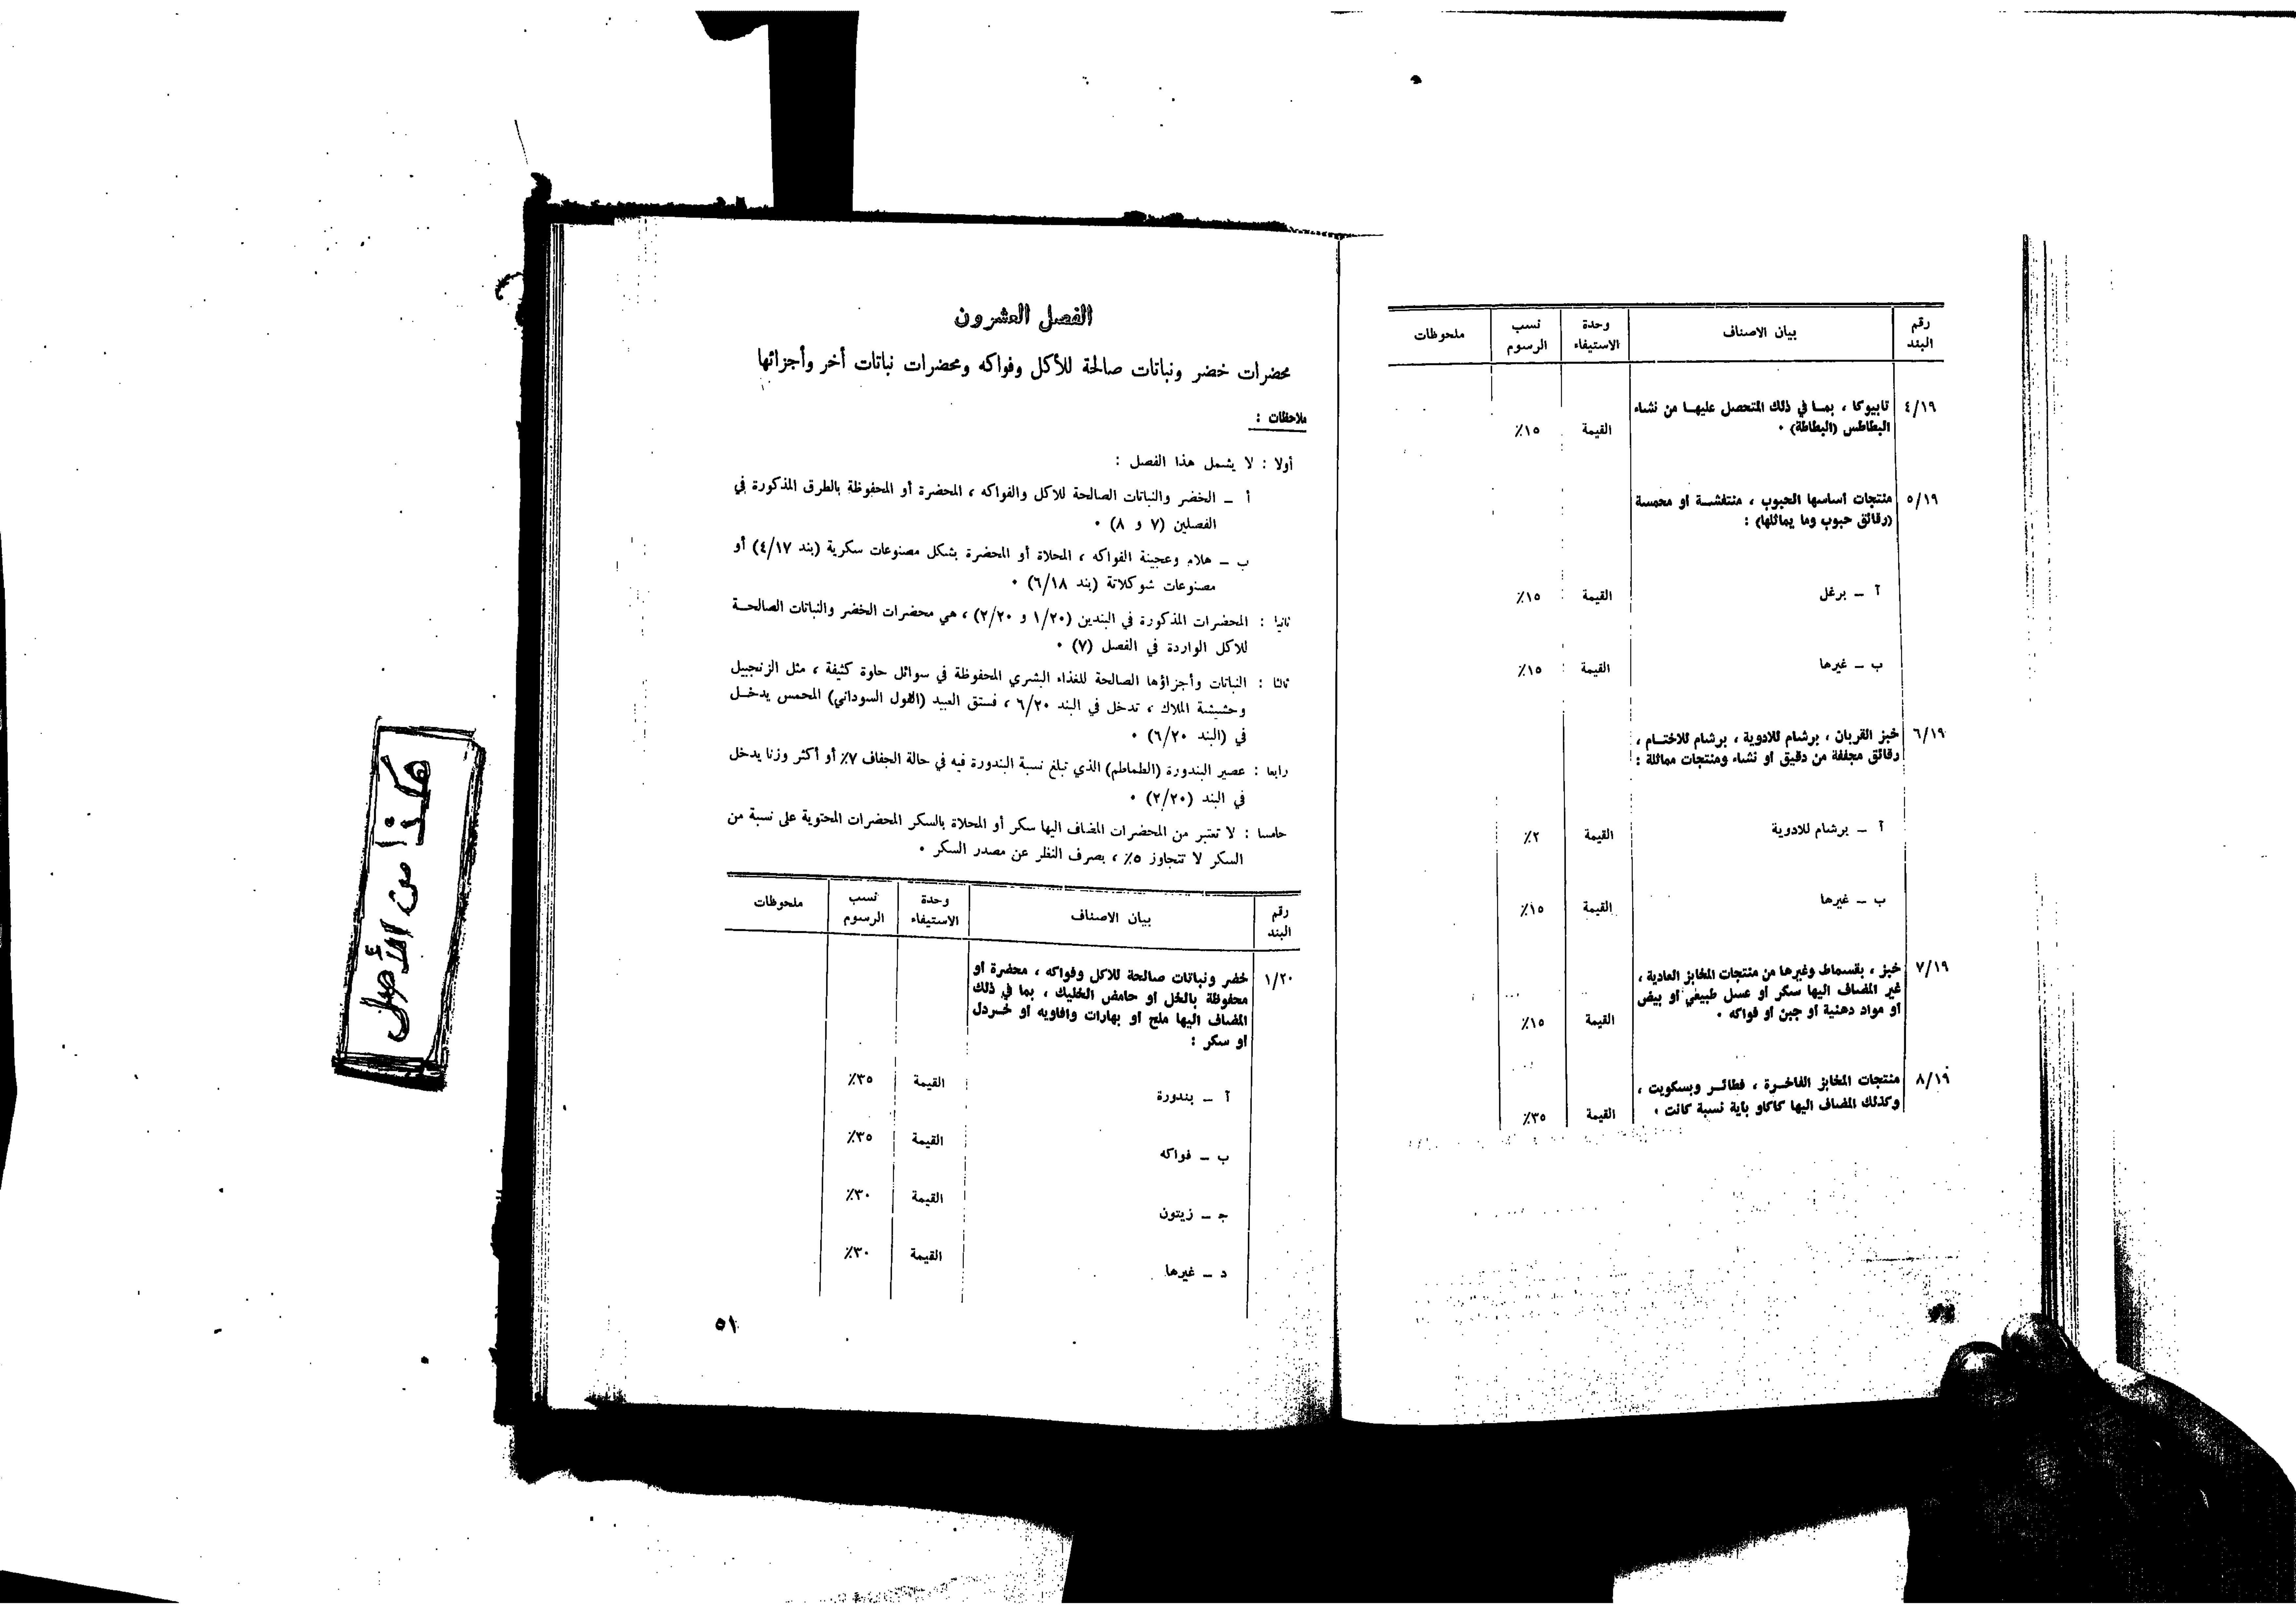 رقم البند | بيان الاصناف | وحدة الاستيفاء | نسب الرسوم | ملحوظات
٤/١٩ | تابيوكا ، بمـا في ذلك المتحصل عليهـا من نشاء
البطاطس (البطاطة) ٠ | القيمة | ١٥٪
٥/١٩ | منتجات أساسها الحبوب ، منتفشـة أو محمسة
(رقائق حبوب وما يماثلها) :
آ ـ برغل | القيمة | ١٥٪
ب ـ غيرها | القيمة | ١٥٪
٦/١٩ | خبز القربان ، برشام للادوية ، برشام للاختـام ،
رقائق مجففة من دقيق أو نشاء ومنتجات مماثلة :
آ ـ برشام للادوية | القيمة | ٢٪
ب ـ غيرها | القيمة | ١٥٪
٧/١٩ | خبز ، بقسماط وغيرها من منتجات المخابز العادية ،
غير المضاف اليها سكر أو عسل طبيعي أو بيض
أو مواد دهنية أو جبن أو فواكه ٠ | القيمة | ١٥٪
٨/١٩ | منتجات المخابز الفاخـرة ، فطائـر وبسكويت ،
وكذلك المضاف اليها كاكاو بأية نسبة كانت ٠ | القيمة | ٣٥٪
الفصل العشرون
محضرات خضر ونباتات صالحة للأكل وفواكه ومحضرات نباتات أخر وأجزائها
ملاحظات :
أولا : لا يشمل هذا الفصل :
أ ـ الخضر والنباتات الصالحة للاكل والفواكه ، المحضرة أو المحفوظة بالطرق المذكورة في
الفصلين (٧ و ٨) ٠
ب ـ هلام وعجينة الفواكه ، المحلاة أو المحضرة بشكل مصنوعات سكرية (بند ٤/١٧) أو
مصنوعات شوكلاتة (بند ٦/١٨) ٠
ثانيا : المحضرات المذكورة في البندين (١/٢٠ و ٢/٢٠) ، هي محضرات الخضر والنباتات الصالحـة
للاكل الواردة في الفصل (٧) ٠
ثالثا : النباتات وأجزاؤها الصالحة للغذاء البشري المحفوظة في سوائل حاوة كثيفة ، مثل الزنجبيل
وحشيشة الملاك ، تدخل في البند ٦/٢٠ ، فستق العبيد (الفول السوداني) المحمس يدخـل
في (البند ٦/٢٠) ٠
رابعا : عصير البندورة (الطماطم) الذي تبلغ نسبة البندورة فيه في حالة الجفاف ٧٪ أو أكثر وزنا يدخل
في البند (٢/٢٠) ٠
خامسا : لا تعتبر من المحضرات المضاف اليها سكر أو المحلاة بالسكر المحضرات المحتوية على نسبة من
السكر لا تتجاوز ٥٪ ، بصرف النظر عن مصدر السكر ٠
رقم البند | بيان الاصناف | وحدة الاستيفاء | نسب الرسوم | ملحوظات
١/٢٠ | خضر ونباتات صالحة للاكل وفواكه ، محضرة أو
محفوظة بالخل أو حامض الخليك ، بما في ذلك
المضاف اليها ملح أو بهارات وافاويه أو خـردل
أو سكر :
آ ـ بندورة | القيمة | ٣٥٪
ب ـ فواكه | القيمة | ٣٥٪
جـ ـ زيتون | القيمة | ٣٠٪
د ـ غيرها | القيمة | ٣٠٪
٥١
هكذا من الأصل